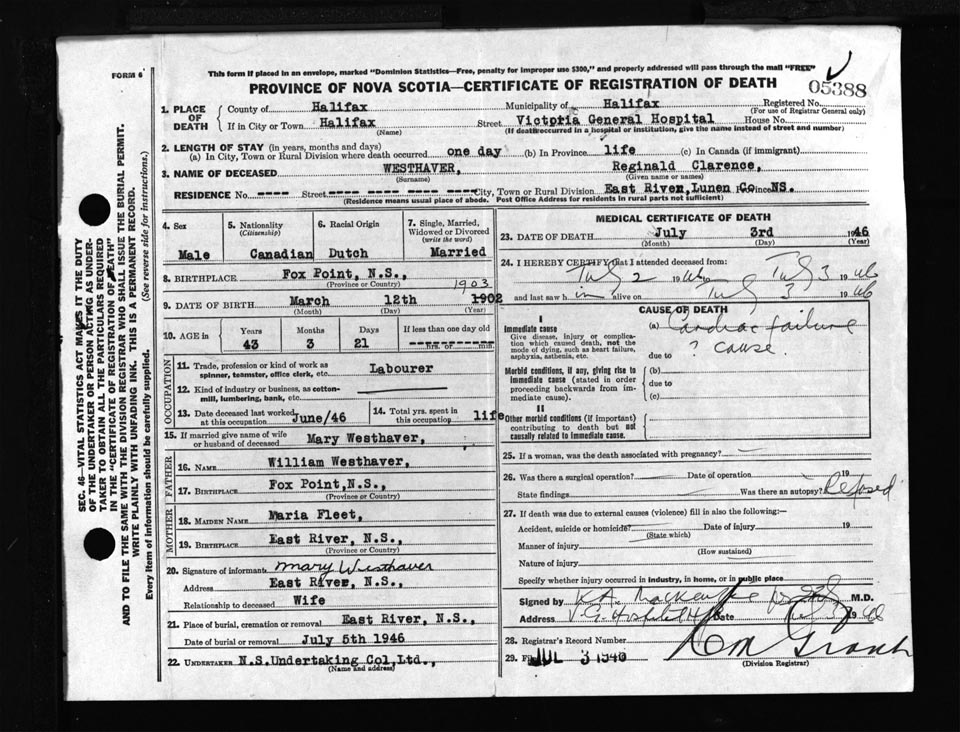 FORM 6
This form if placed in an envelope, marked "Dominion Statistics—Free, penalty for improper use $300," and properly addressed will pass through the mail "FREE"
PROVINCE OF NOVA SCOTIA—CERTIFICATE OF REGISTRATION OF DEATH
05388
1. PLACE OF DEATH
County of Halifax Municipality of Halifax Registered No.
(For use of Registrar General only)
If in City or Town Halifax Street Victoria General Hospital House No.
(Name) (If death occurred in a hospital or institution, give the name instead of street and number)
2. LENGTH OF STAY (in years, months and days)
(a) In City, Town or Rural Division where death occurred one day (b) In Province life (c) In Canada (if immigrant)
3. NAME OF DECEASED WESTHAVER, Reginald Clarence,
(Surname) (Given name or names)
RESIDENCE No. ---- Street ---- ---- ---- ---- City, Town or Rural Division East River, Lunen Co Province NS.
(Residence means usual place of abode. Post Office Address for residents in rural parts not sufficient)
4. Sex
Male
5. Nationality
(Citizenship)
Canadian
6. Racial Origin
Dutch
7. Single, Married, Widowed or Divorced
(write the word)
Married
8. BIRTHPLACE Fox Point, N.S.,
(Province or Country)
1903
9. DATE OF BIRTH March 12th 1902
(Month) (Day) (Year)
10. AGE in
Years Months Days If less than one day old
43 3 21 ---------- hrs. or ---------- min.
OCCUPATION
11. Trade, profession or kind of work as spinner, teamster, office clerk, etc. Labourer
12. Kind of industry or business, as cotton-mill, lumbering, bank, etc.
13. Date deceased last worked at this occupation June/46
14. Total yrs. spent in this occupation life
15. If married give name of wife or husband of deceased Mary Westhaver,
FATHER
16. NAME William Westhaver,
17. BIRTHPLACE Fox Point, N.S.,
(Province or Country)
MOTHER
18. MAIDEN NAME Maria Fleet,
19. BIRTHPLACE East River, N.S.,
(Province or Country)
20. Signature of informant Mary Westhaver
Address East River, N.S.,
Relationship to deceased Wife
21. Place of burial, cremation or removal East River, N.S.,
Date of burial or removal July 5th 1946
22. UNDERTAKER N.S.Undertaking Col,Ltd.,
(Name and address)
MEDICAL CERTIFICATE OF DEATH
23. DATE OF DEATH July 3rd 1946
(Month) (Day) (Year)
24. I HEREBY CERTIFY that I attended deceased from:
July 2 1946 to July 3 1946
and last saw him alive on July 3 1946
CAUSE OF DEATH
I
Immediate cause
Give disease, injury or complication which caused death, not the mode of dying, such as heart failure, asphyxia, asthenia, etc.
(a) Cardiac failure
due to ? cause.
Morbid conditions, if any, giving rise to immediate cause (stated in order proceeding backwards from immediate cause).
(b)
due to
(c)
II
Other morbid conditions (if important) contributing to death but not causally related to immediate cause.
25. If a woman, was the death associated with pregnancy?
26. Was there a surgical operation? Date of operation 19
State findings Was there an autopsy? Refused
27. If death was due to external causes (violence) fill in also the following:—
Accident, suicide or homicide? Date of injury 19
(State which)
Manner of injury
(How sustained)
Nature of injury
Specify whether injury occurred in industry, in home, or in public place
Signed by K.A. Mackenzie M.D.
Address V.G. Hospital Date July 3 1946
28. Registrar's Record Number
29. Filed JUL 3 1946
(Division Registrar)
SEC. 46—VITAL STATISTICS ACT MAKES IT THE DUTY
OF THE UNDERTAKER OR PERSON ACTING AS UNDER-
TAKER TO OBTAIN ALL THE PARTICULARS REQUIRED
IN THE "CERTIFICATE OF REGISTRATION OF DEATH"
AND TO FILE THE SAME WITH THE DIVISION REGISTRAR WHO SHALL ISSUE THE BURIAL PERMIT.
WRITE PLAINLY WITH UNFADING INK. THIS IS A PERMANENT RECORD.
Every item of information should be carefully supplied. (See reverse side for instructions.)